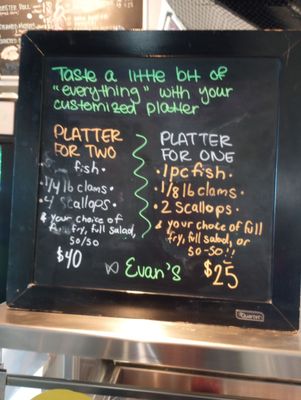 Taste a little bit of
"everything" with your
customized platter
PLATTER
FOR TWO
fish.
1/4 lb clams.
4 Scallops.
& your choice of
fry, full salad,
50/50
$40
PLATTER
FOR ONE
1pc fish.
1/8 lb clams.
2 Scallops.
& your choice of full
fry, full salad, or
50-50!!
$25
Evan's
Quartet